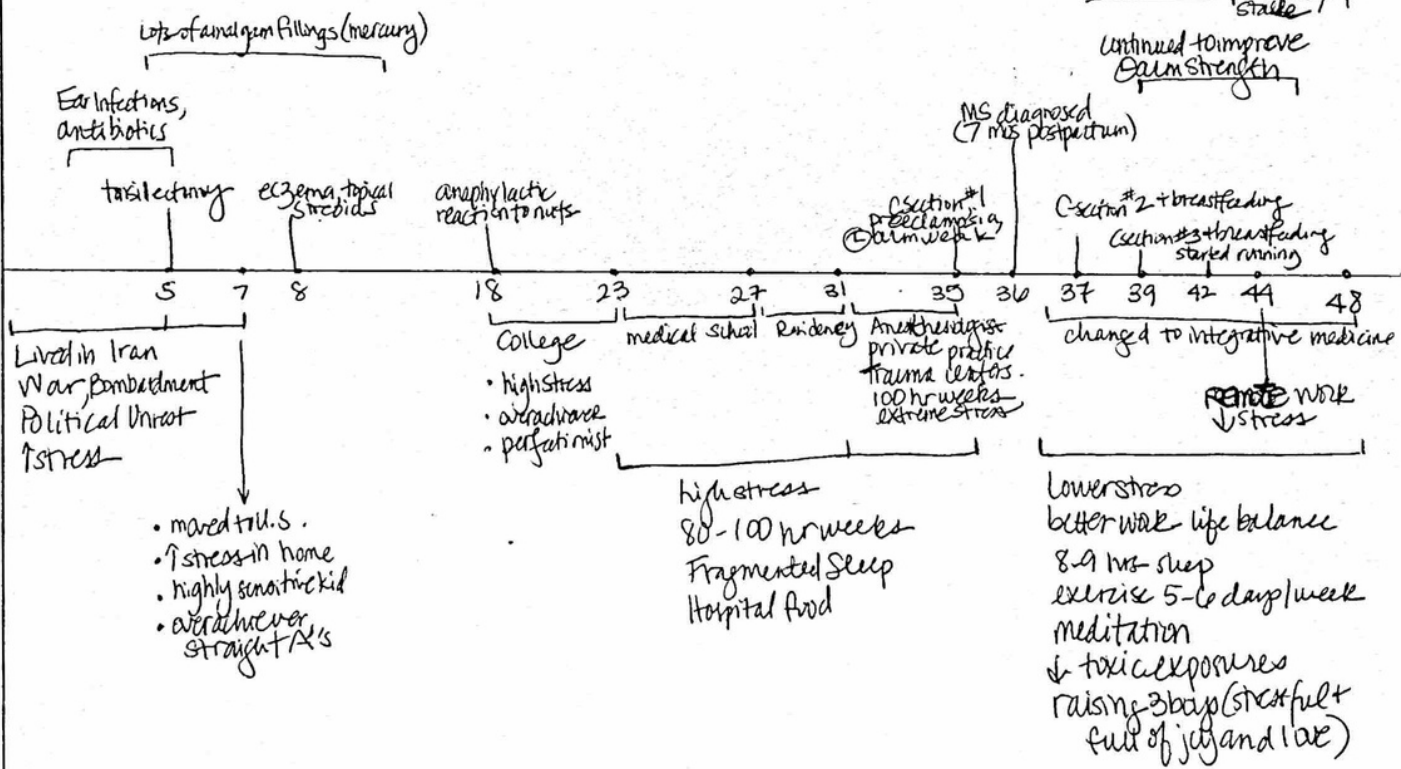 stable
continued to improve
arm strength
Lots of amalgam fillings (mercury)
Ear Infections,
antibiotics
MS diagnosed
(7 mos postpartum)
tonsilectomy
eczema, topical
steroids
anaphylactic
reaction to nuts
C section #1
preeclampsia,
Ⓛ arm weak
C-section #2 + breastfeeding
C section #3 + breastfeeding
started running
5 7 8 18 23 27 31 35 36 37 39 42 44 48
Lived in Iran
War, Bombardment
Political Unrest
↑ stress
College
• high stress
• overachiever
• perfectionist
medical school
Residency
Anesthesiologist
private practice
trauma centers.
100 hr weeks
extreme stress
changed to integrative medicine
remote work
↓ stress
• moved to U.S.
• ↑ stress in home
• highly sensitive kid
• overachiever,
straight A's
high stress
80-100 hr weeks
Fragmented Sleep
Hospital food
lower stress
better work life balance
8-9 hrs sleep
exercise 5-6 days/week
meditation
↓ toxic exposures
raising 3 boys (stressful +
full of joy and love)